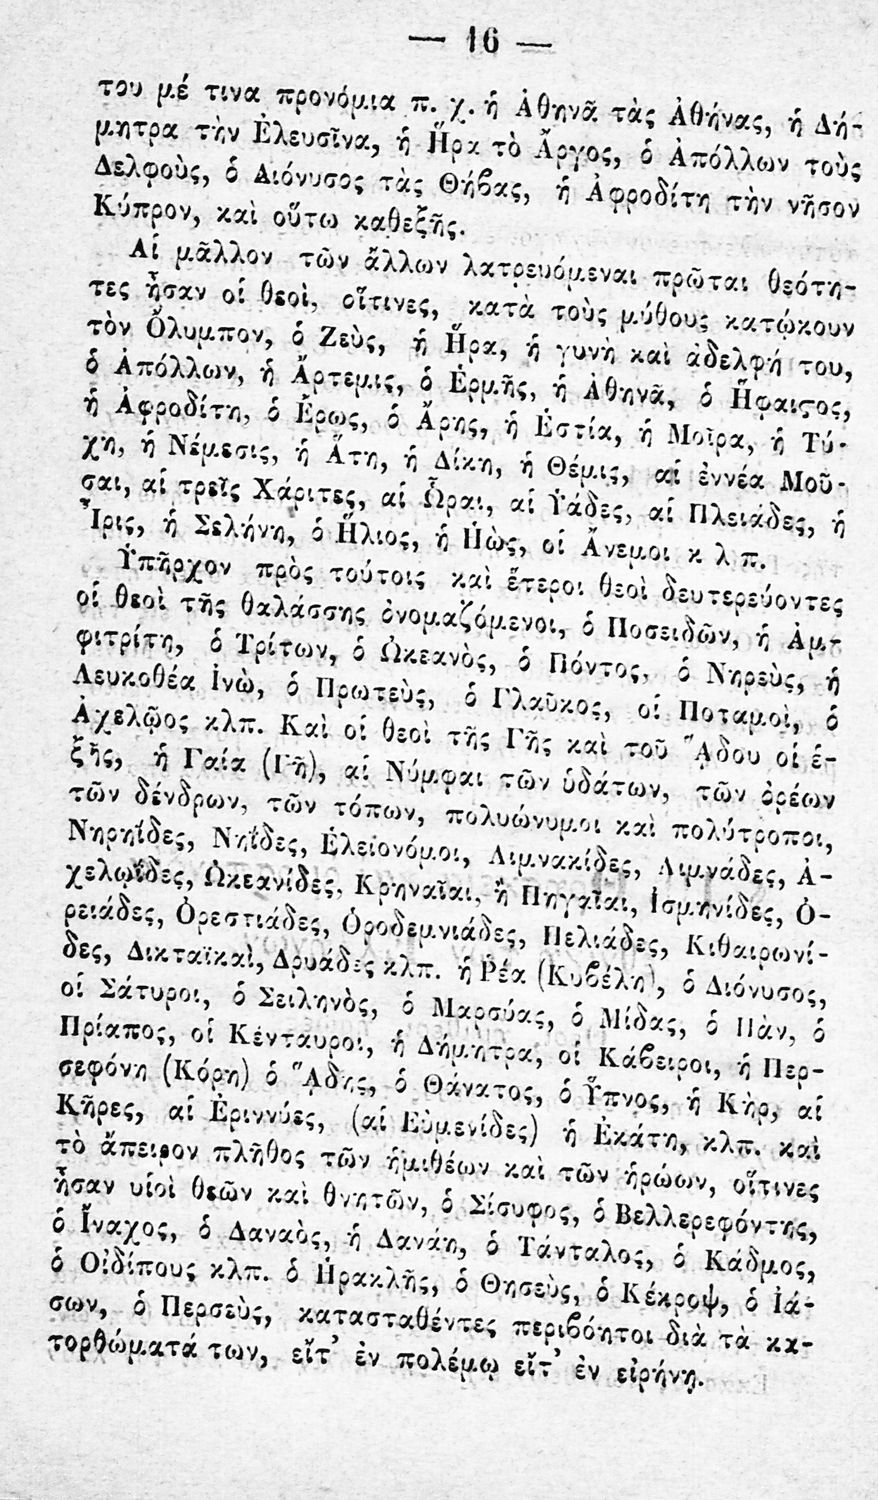 — 16 —
του μέ τινα προνόμια π. χ. ἡ Ἀθηνᾶ τὰς Ἀθήνας, ἡ Δή-
μητρα τὴν Ἐλευσῖνα, ἡ Ἥρα τὸ Ἄργος, ὁ Ἀπόλλων τοὺς
Δελφοὺς, ὁ Διόνυσος τὰς Θήβας, ἡ Ἀφροδίτη τὴν νῆσον
Κύπρον, καὶ οὕτω καθεξῆς.
Αἱ μᾶλλον τῶν ἄλλων λατρευόμεναι πρῶται θεότη-
τες ἦσαν οἱ θεοὶ, οἵτινες, κατὰ τοὺς μύθους κατῴκουν
τὸν Ὄλυμπον, ὁ Ζεὺς, ἡ Ἥρα, ἡ γυνὴ καὶ ἀδελφή του,
ὁ Ἀπόλλων, ἡ Ἄρτεμις, ὁ Ἑρμῆς, ἡ Ἀθηνᾶ, ὁ Ἥφαιϛος,
ἡ Ἀφροδίτη, ὁ Ἔρως, ὁ Ἄρης, ἡ Ἑστία, ἡ Μοῖρα, ἡ Τύ-
χη, ἡ Νέμεσις, ἡ Ἄτη, ἡ Δίκη, ἡ Θέμις, αἱ ἐννέα Μοῦ-
σαι, αἱ τρεῖς Χάριτες, αἱ Ὧραι, αἱ Ὑάδες, αἱ Πλειάδες, ἡ
Ἶρις, ἡ Σελήνη, ὁ Ἥλιος, ἡ Ἠὼς, οἱ Ἄνεμοι κ λ π.
Ὑπῆρχον πρὸς τούτοις καὶ ἕτεροι θεοὶ δευτερεύοντες
οἱ θεοὶ τῆς θαλάσσης ὀνομαζόμενοι, ὁ Ποσειδῶν, ἡ Ἀμ-
φιτρίτη, ὁ Τρίτων, ὁ Ὠκεανὸς, ὁ Πόντος, ὁ Νηρεὺς, ἡ
Λευκοθέα Ἰνὼ, ὁ Πρωτεὺς, ὁ Γλαῦκος, οἱ Ποταμοὶ, ὁ
Ἀχελῷος κλπ. Καὶ οἱ θεοὶ τῆς Γῆς καὶ τοῦ ᾍδου οἱ ἑ-
ξῆς, ἡ Γαία (Γῆ), αἱ Νύμφαι τῶν ὑδάτων, τῶν ὀρέων
τῶν δένδρων, τῶν τόπων, πολυώνυμοι καὶ πολύτροποι,
Νηρηΐδες, Νηΐδες, Ἑλειονόμοι, Λιμνακίδες, Λιμνάδες, Ἀ-
χελωΐδες, Ὠκεανίδες, Κρηναῖαι, ἢ Πηγαῖαι, Ἰσμηνίδες, Ὀ-
ρειάδες, Ὀρεστιάδες, Ὁροδεμνιάδες, Πελιάδες, Κιθαιρωνί-
δες, Δικταϊκαὶ, Δρυάδες κλπ. ἡ Ῥέα (Κυβέλη), ὁ Διόνυσος,
οἱ Σάτυροι, ὁ Σειληνὸς, ὁ Μαρσύας, ὁ Μίδας, ὁ Πὰν, ὁ
Πρίαπος, οἱ Κένταυροι, ἡ Δήμητρα, οἱ Κάβειροι, ἡ Περ-
σεφόνη (Κόρη) ὁ ᾍδης, ὁ Θάνατος, ὁ Ὕπνος, ἡ Κὴρ, αἱ
Κῆρες, αἱ Ἐριννύες, (αἱ Εὐμενίδες) ἡ Ἑκάτη, κλπ. καὶ
τὸ ἄπειρον πλῆθος τῶν ἡμιθέων καὶ τῶν ἡρώων, οἵτινες
ἦσαν υἱοὶ θεῶν καὶ θνητῶν, ὁ Σίσυφος, ὁ Βελλερεφόντης,
ὁ Ἴναχος, ὁ Δαναὸς, ἡ Δανάη, ὁ Τάνταλος, ὁ Κάδμος,
ὁ Οἰδίπους κλπ. ὁ Ἡρακλῆς, ὁ Θησεὺς, ὁ Κέκροψ, ὁ Ἰά-
σων, ὁ Περσεὺς, κατασταθέντες περιβόητοι διὰ τὰ κα-
τορθώματά των, εἴτ’ ἐν πολέμῳ εἴτ’ ἐν εἰρήνῃ.